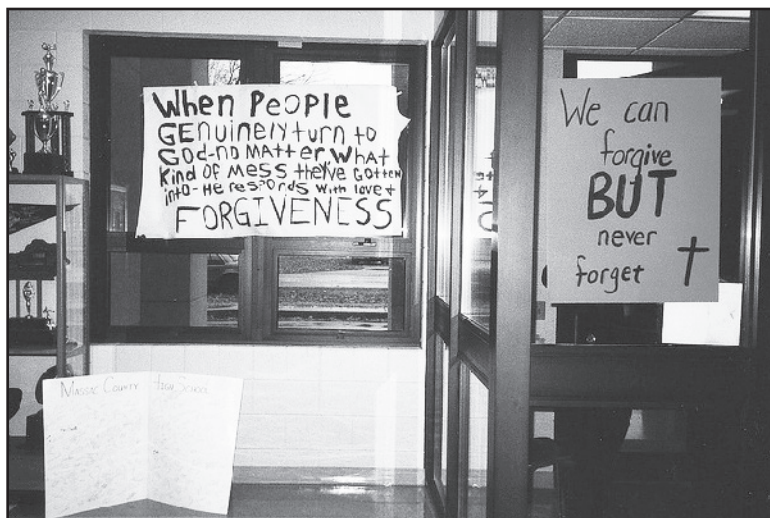 When PEOPLE
GEnuinely turn to
GOd-no MAtteR What
Kind of MESS they've GOTTEN
into-HE responds with love +
FORGIVENESS
We can
forgive
BUT
never
forget
Massac County High School